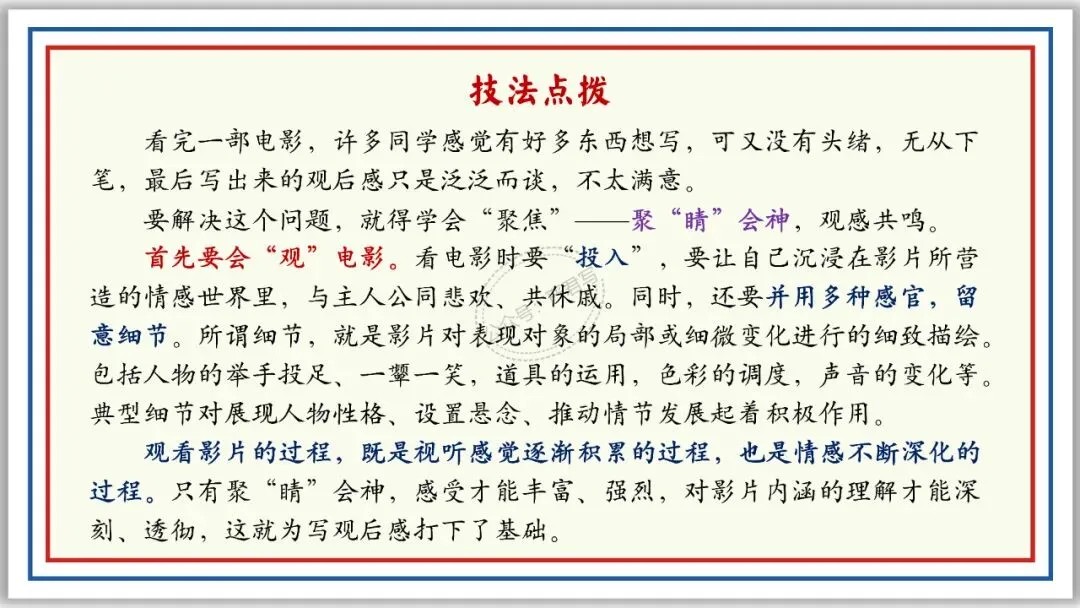 技法点拨
看完一部电影，许多同学感觉有好多东西想写，可又没有头绪，无从下
笔，最后写出来的观后感只是泛泛而谈，不太满意。
要解决这个问题，就得学会“聚焦”——聚“睛”会神，观感共鸣。
首先要会“观”电影。看电影时要“投入”，要让自己沉浸在影片所营
造的情感世界里，与主人公同悲欢、共休戚。同时，还要并用多种感官，留
意细节。所谓细节，就是影片对表现对象的局部或细微变化进行的细致描绘。
包括人物的举手投足、一颦一笑，道具的运用，色彩的调度，声音的变化等。
典型细节对展现人物性格、设置悬念、推动情节发展起着积极作用。
观看影片的过程，既是视听感觉逐渐积累的过程，也是情感不断深化的
过程。只有聚“睛”会神，感受才能丰富、强烈，对影片内涵的理解才能深
刻、透彻，这就为写观后感打下了基础。